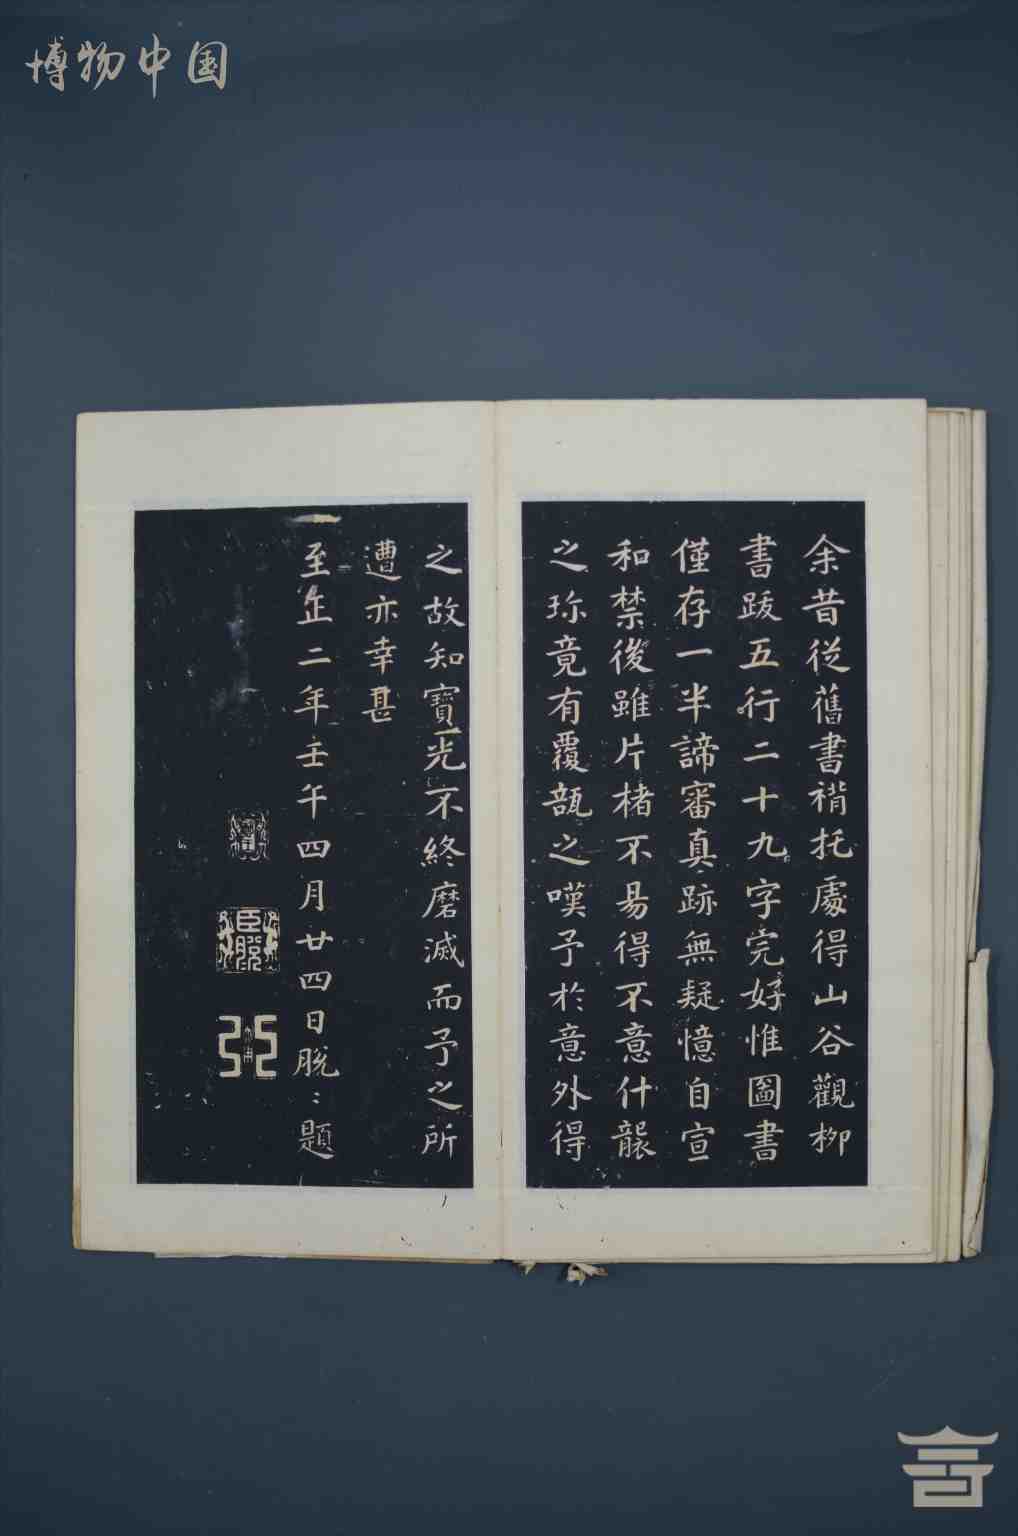 博物中国
余昔從舊書褙托處得山谷觀柳
書跋五行二十九字完好惟圖書
僅存一半諦審真跡無疑憶自宣
和禁後雖片楮不易得不意什襲
之珎竟有覆瓿之嘆予於意外得
之故知寶光不終磨滅而予之所
遭亦幸甚
至正二年壬午四月廿四日脫〻題
臣脫